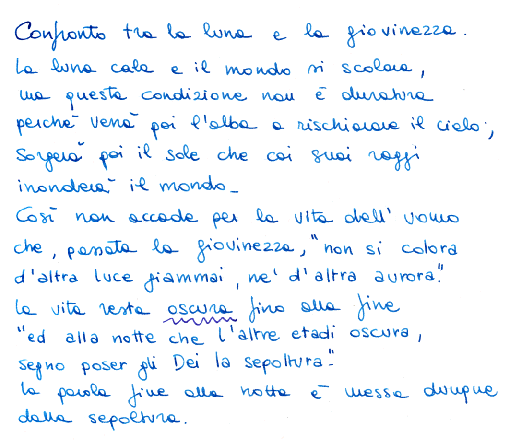 Confronto tra la luna e la giovinezza.
La luna cala e il mondo si scolora,
ma questa condizione non è duratura
perchè verrà poi l'alba a rischiarare il cielo;
Sorgerà poi il sole che coi suoi raggi
inonderà il mondo_
Così non accade per la vita dell'uomo
che, passata la giovinezza, "non si colora
d'altra luce giammai, nè d'altra aurora".
La vita resta oscura fino alla fine
"ed alla notte che l'altre etadi oscura,
segno poser gli Dei la sepoltura".
La parola fine alla notte è messa dunque
dalla sepoltura.